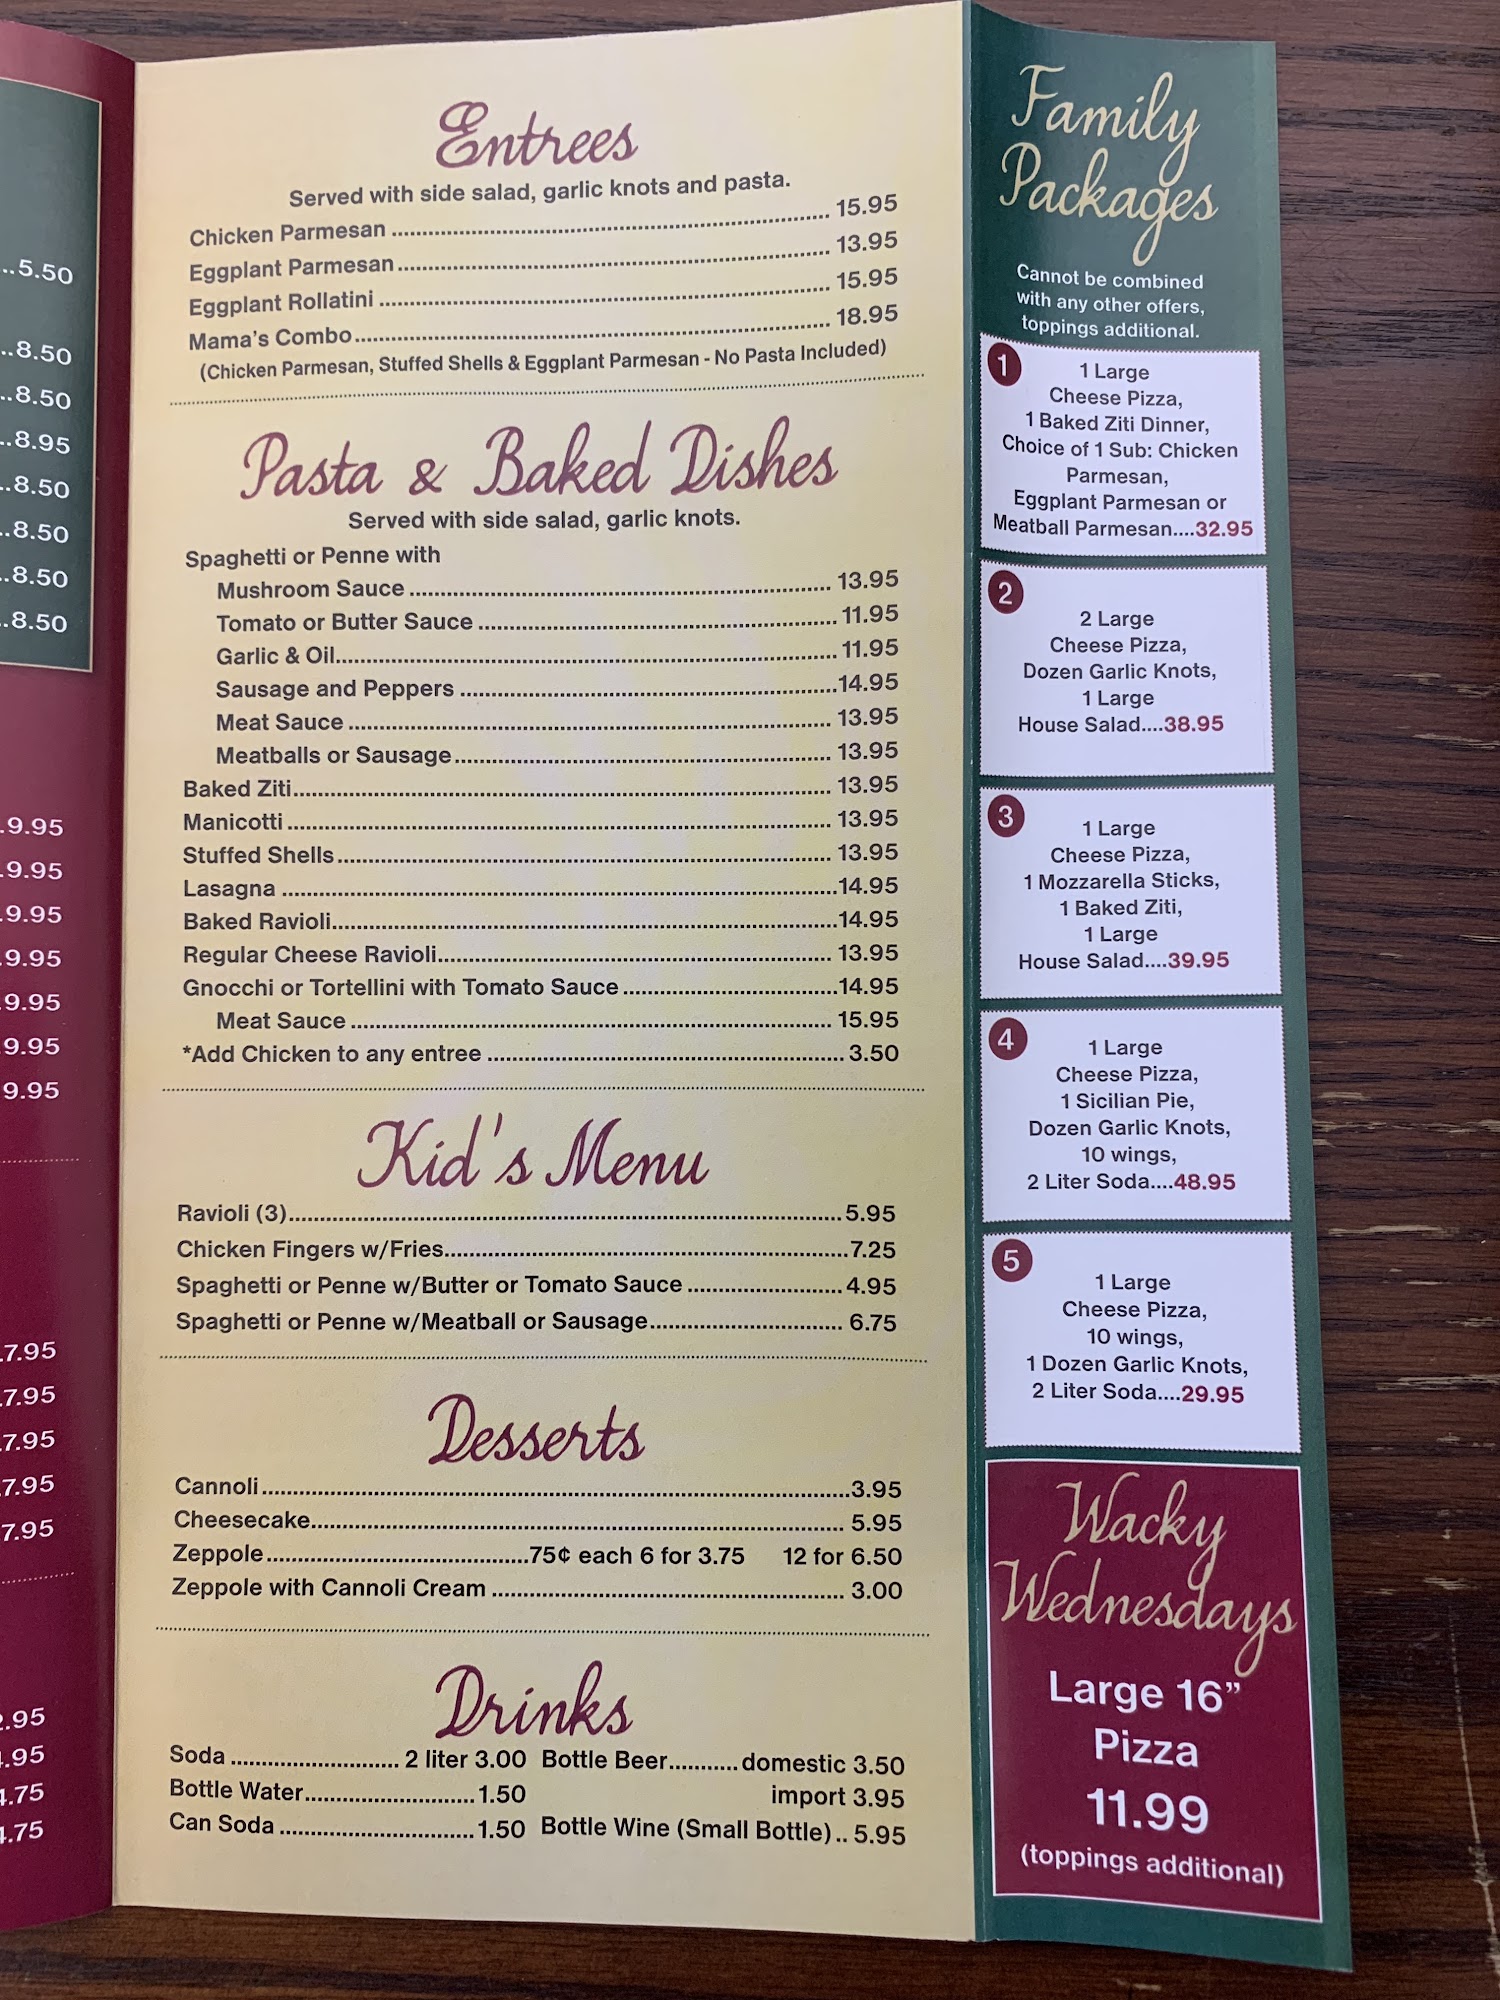 ..5.50
..8.50
..8.50
..8.95
..8.50
..8.50
..8.50
..8.50
.9.95
.9.95
.9.95
.9.95
.9.95
.9.95
9.95
.7.95
.7.95
.7.95
.7.95
7.95
.95
.95
.75
.75
Entrees
Served with side salad, garlic knots and pasta.
Chicken Parmesan ........ 15.95
Eggplant Parmesan ........ 13.95
Eggplant Rollatini ........ 15.95
Mama's Combo ........ 18.95
(Chicken Parmesan, Stuffed Shells & Eggplant Parmesan - No Pasta Included)
Pasta & Baked Dishes
Served with side salad, garlic knots.
Spaghetti or Penne with
Mushroom Sauce ........ 13.95
Tomato or Butter Sauce ........ 11.95
Garlic & Oil ........ 11.95
Sausage and Peppers ........ 14.95
Meat Sauce ........ 13.95
Meatballs or Sausage ........ 13.95
Baked Ziti ........ 13.95
Manicotti ........ 13.95
Stuffed Shells ........ 13.95
Lasagna ........ 14.95
Baked Ravioli ........ 14.95
Regular Cheese Ravioli ........ 13.95
Gnocchi or Tortellini with Tomato Sauce ........ 14.95
Meat Sauce ........ 15.95
*Add Chicken to any entree ........ 3.50
Kid's Menu
Ravioli (3) ........ 5.95
Chicken Fingers w/Fries ........ 7.25
Spaghetti or Penne w/Butter or Tomato Sauce ........ 4.95
Spaghetti or Penne w/Meatball or Sausage ........ 6.75
Desserts
Cannoli ........ 3.95
Cheesecake ........ 5.95
Zeppole ........ 75¢ each 6 for 3.75 12 for 6.50
Zeppole with Cannoli Cream ........ 3.00
Drinks
Soda ........ 2 liter 3.00 Bottle Beer ........ domestic 3.50
Bottle Water ........ 1.50 import 3.95
Can Soda ........ 1.50 Bottle Wine (Small Bottle) .. 5.95
Family
Packages
Cannot be combined
with any other offers,
toppings additional.
1
1 Large
Cheese Pizza,
1 Baked Ziti Dinner,
Choice of 1 Sub: Chicken
Parmesan,
Eggplant Parmesan or
Meatball Parmesan....32.95
2
2 Large
Cheese Pizza,
Dozen Garlic Knots,
1 Large
House Salad....38.95
3
1 Large
Cheese Pizza,
1 Mozzarella Sticks,
1 Baked Ziti,
1 Large
House Salad....39.95
4
1 Large
Cheese Pizza,
1 Sicilian Pie,
Dozen Garlic Knots,
10 wings,
2 Liter Soda....48.95
5
1 Large
Cheese Pizza,
10 wings,
1 Dozen Garlic Knots,
2 Liter Soda....29.95
Wacky
Wednesdays
Large 16”
Pizza
11.99
(toppings additional)